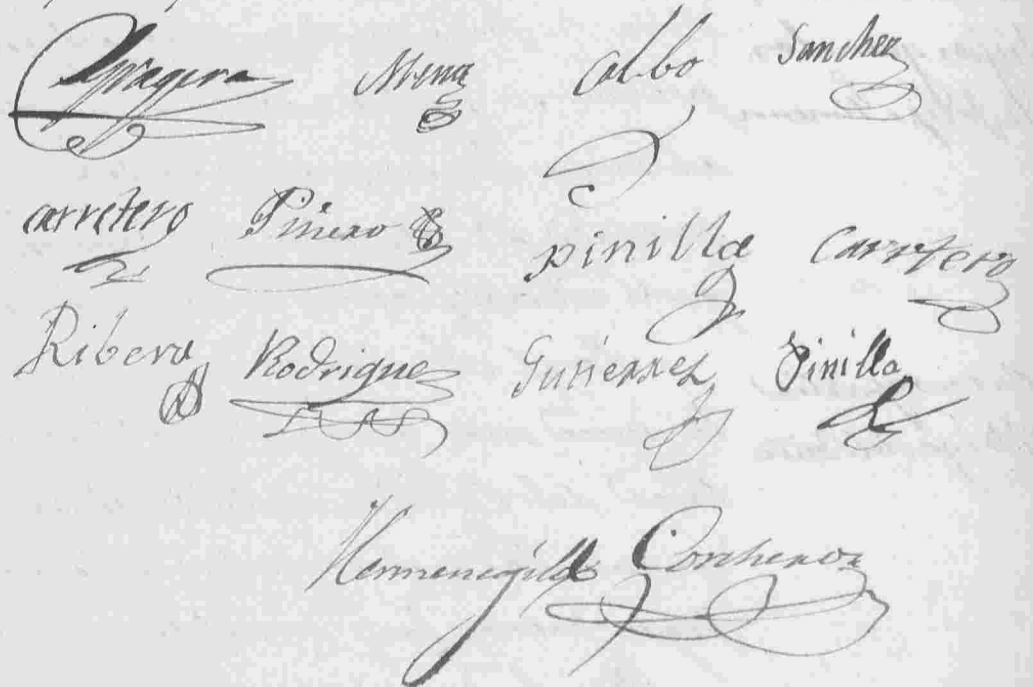 Mena Calbo Sanchez
carretero Piñero pinilla Carretero
Ribera Rodriguez Gutierrez Pinilla
Hermenegildo Corcheroz